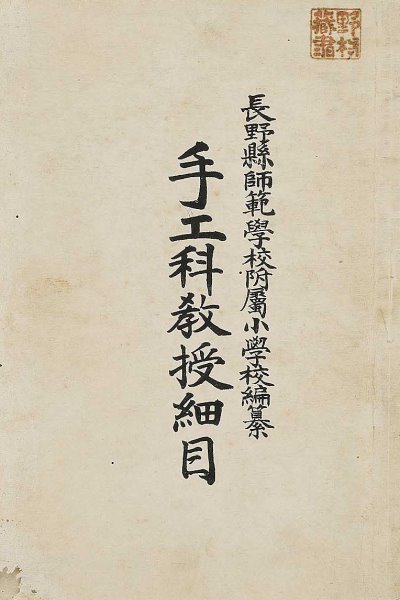 長野縣師範學校附屬小學校編纂
手工科教授細目